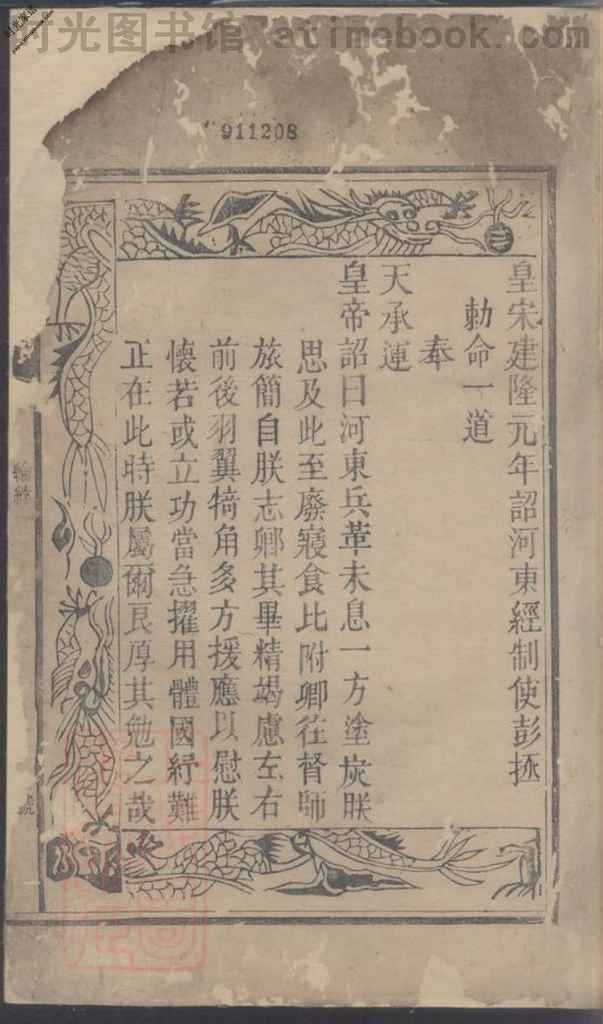 时光图书馆 atimebook.com
911208
皇宋建隆元年詔河東經制使彭拯
勅命一道
奉
天承運
皇帝詔曰河東兵革未息一方塗炭朕
思及此至廢寢食比附卿往督師
旅簡自朕志卿其畢精竭慮左右
前後羽翼犄角多方援應以慰朕
懷若或立功當急擢用體國紓難
正在此時朕屬爾良厚其勉之哉